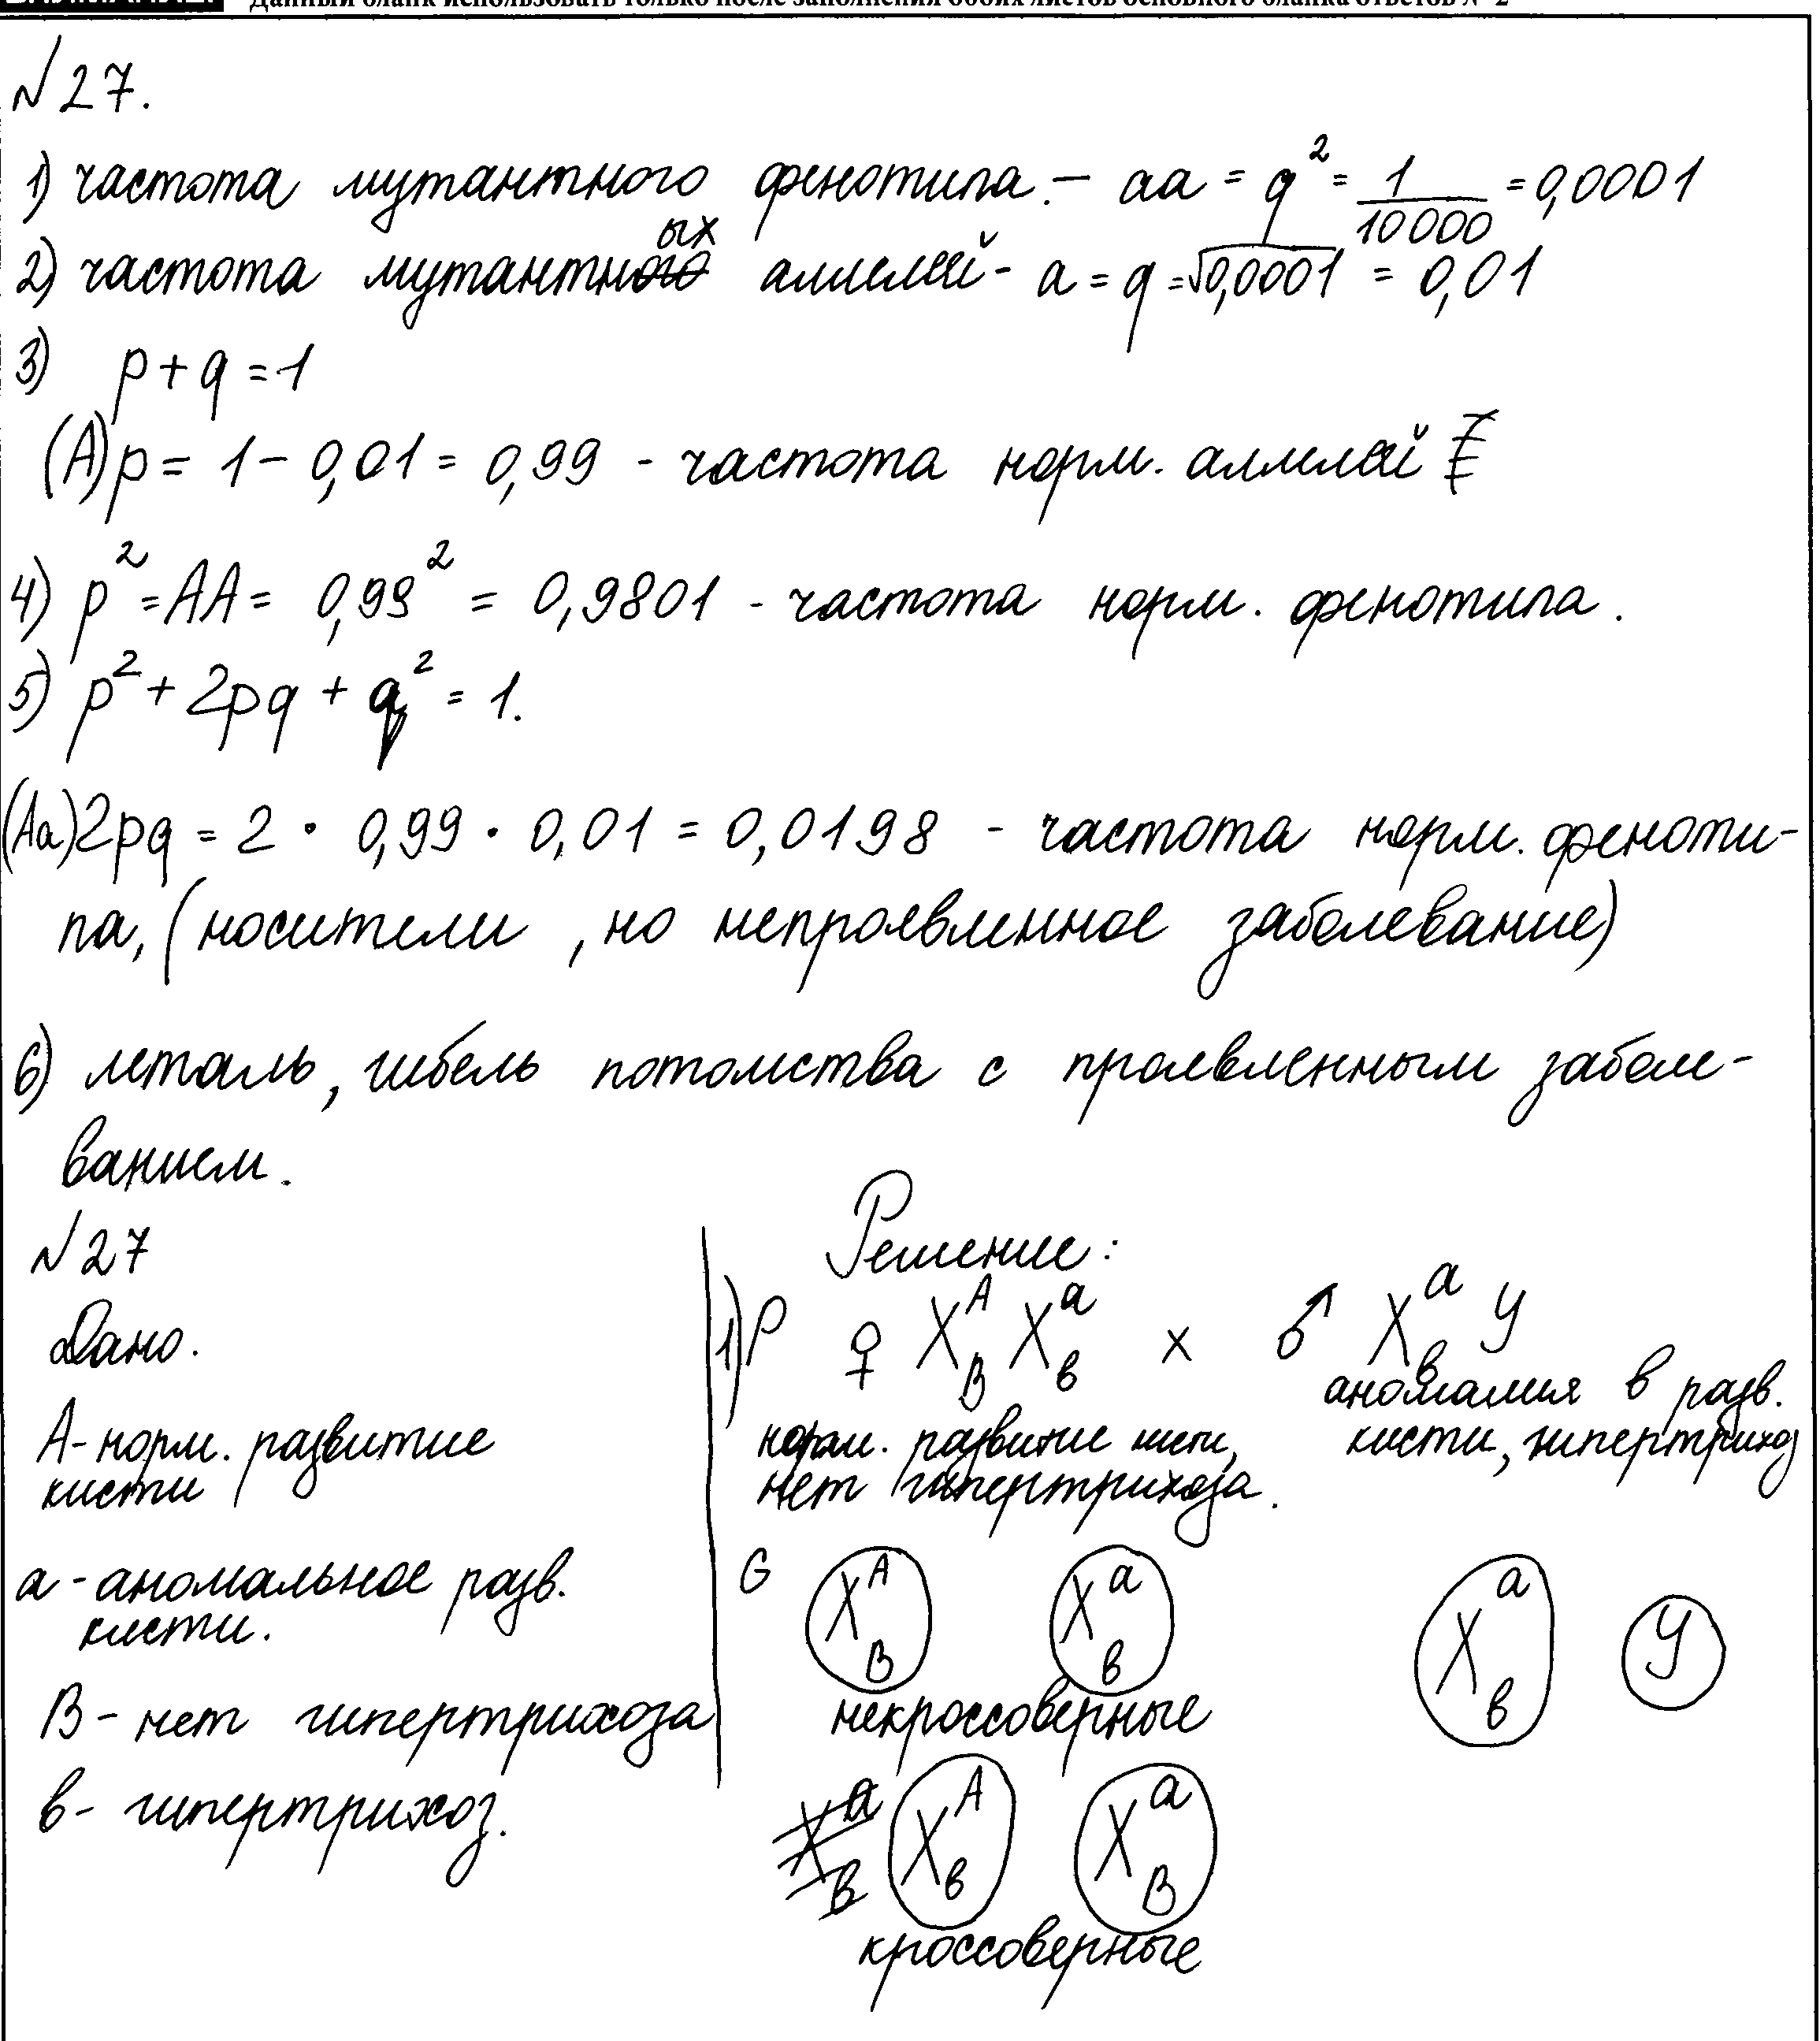 Данный бланк использовать только после заполнения обоих листов основного бланка ответов № 2
№27.
1) частота мутантного фенотипа. – аа = q² = 1/10000 = 0,0001
2) частота мутантных аллелей - а = q = √0,0001 = 0,01
3) p + q = 1
(А) p = 1 – 0,01 = 0,99 - частота норм. аллелей
4) p² = АА = 0,99² = 0,9801 - частота норм. фенотипа.
5) p² + 2pq + q² = 1.
(Аа) 2pq = 2 · 0,99 · 0,01 = 0,0198 - частота норм. феноти-
па, (носители, но непроявленное заболевание)
6) леталь, гибель потомства с проявленным заболе-
ванием.
№27
Дано.
А- норм. развитие
кисти
а - аномальное разв.
кисти.
В - нет гипертрихоза
в - гипертрихоз.
Решение:
1) Р ♀ Xᴬ_В Xᵃ_в х ♂ Xᵃ_в У
норм. развитие кисти,
нет гипертрихоза.
аномалия в разв.
кисти, гипертрихоз
G Xᴬ_В Xᵃ_в Xᵃ_в У
некроссоверные
Xᴬ_в Xᵃ_В
кроссоверные